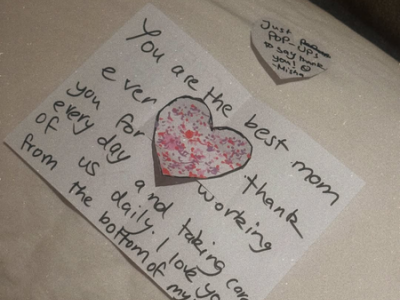 You are the best mom
ever thank
you for working
every day and taking care
of us daily. I love yo
from the bottom of my
Just
POP-UPS
to say thank
you! ☺
-Misha